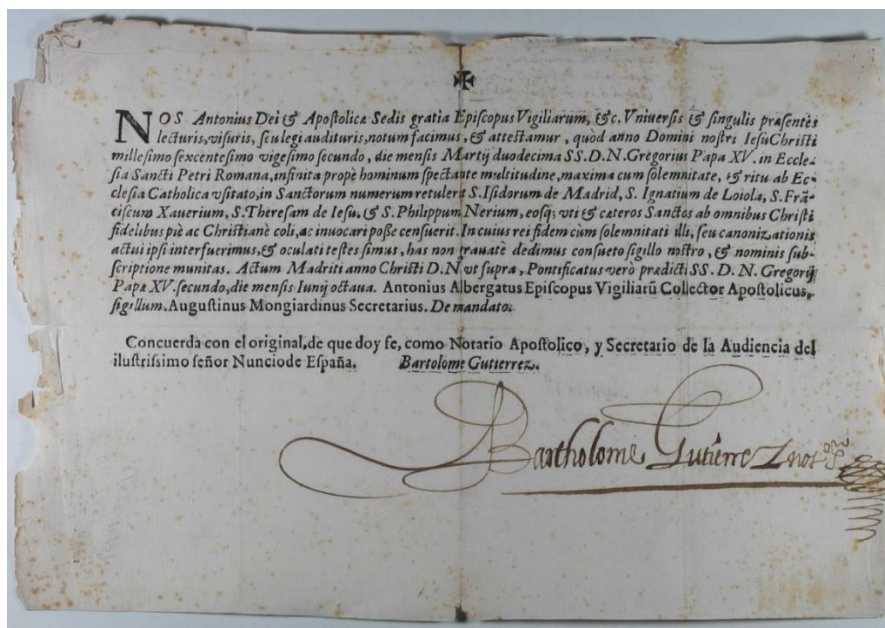 ✠
NOS Antonius Dei & Apoſtolicæ Sedis gratia Epiſcopus Vigiliarum, &c. Vniuerſis & ſingulis præſentes
lecturis, viſuris, ſeu legi audituris, notum facimus, & atteſtamur, quòd anno Domini noſtri IeſuChriſti
milleſimo ſexcenteſimo vigeſimo ſecundo, die menſis Martij duodecima SS. D. N. Gregorius Papa XV. in Eccle-
ſia Sancti Petri Romana, infinita propè hominum ſpectante multitudine, maxima cum ſolemnitate, & ritu ab Ec-
cleſia Catholica vſitato, in Sanctorum numerum retulerit S. Iſidorum de Madrid, S. Ignatium de Loiola, S. Frã-
ciſcum Xauerium, S. Thereſam de Ieſu. & S. Philippum Nerium, eoſq; vti & cæteros Sanctos ab omnibus Chriſti
fidelibus piè ac Chriſtianè coli, ac inuocari poſſe cenſuerit. In cuius rei fidem cùm ſolemnitati illi, ſeu canonizationis
actui ipſi interfuerimus, & oculati teſtes ſimus, has non grauatè dedimus conſueto ſigillo noſtro, & nominis ſub-
ſcriptione munitas. Actum Madriti anno Chriſti D. N vt ſupra, Pontificatus verò prædicti SS. D. N. Gregorij
Papæ XV. ſecundo, die menſis Iunij octaua. Antonius Albergatus Epiſcopus Vigiliarũ Collector Apoſtolicus,
ſigillum. Auguſtinus Mongiardinus Secretarius. De mandato.
Concuerda con el original, de que doy fe, como Notario Apoſtolico, y Secretario de la Audiencia del
iluſtriſſimo ſeñor Nunciode Eſpaña. Bartolome Gutierrez.
Bartholome Gutierrez